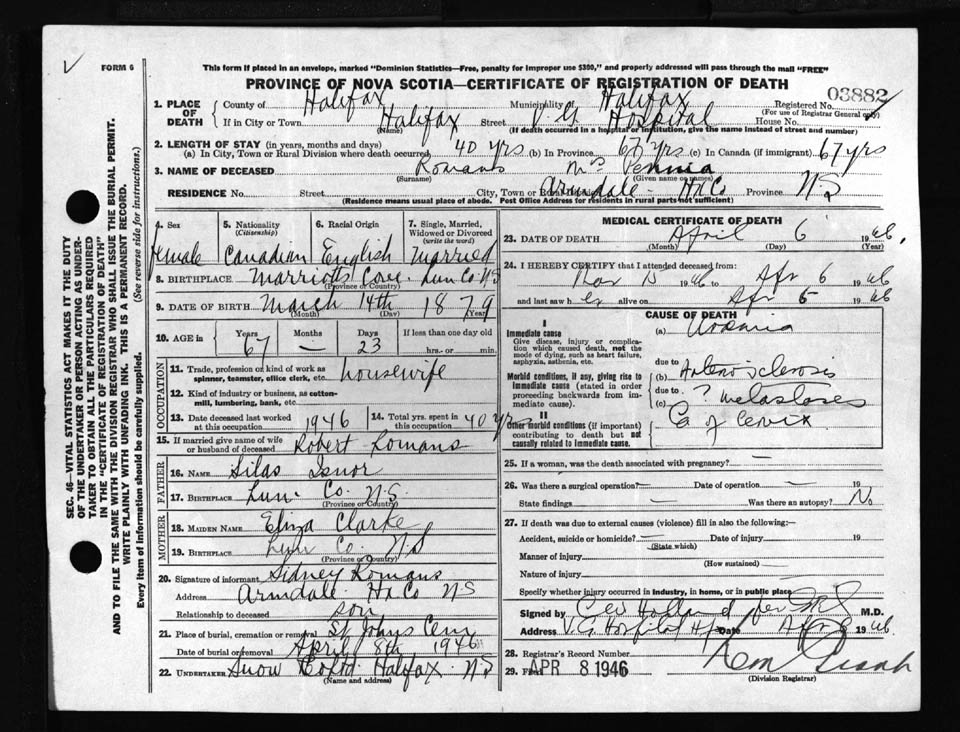 FORM 6
This form if placed in an envelope, marked "Dominion Statistics—Free, penalty for improper use $300," and properly addressed will pass through the mail "FREE"
PROVINCE OF NOVA SCOTIA—CERTIFICATE OF REGISTRATION OF DEATH
SEC. 46—VITAL STATISTICS ACT MAKES IT THE DUTY
OF THE UNDERTAKER OR PERSON ACTING AS UNDER-
TAKER TO OBTAIN ALL THE PARTICULARS REQUIRED
IN THE "CERTIFICATE OF REGISTRATION OF DEATH"
AND TO FILE THE SAME WITH THE DIVISION REGISTRAR WHO SHALL ISSUE THE BURIAL PERMIT.
WRITE PLAINLY WITH UNFADING INK. THIS IS A PERMANENT RECORD.
Every item of information should be carefully supplied. (See reverse side for instructions.)
1. PLACE OF DEATH County of Halifax Municipality Halifax Registered No. 03882
(For use of Registrar General only)
If in City or Town Halifax Street V.G. Hospital House No.
(Name) (If death occurred in a hospital or institution, give the name instead of street and number)
2. LENGTH OF STAY (in years, months and days)
(a) In City, Town or Rural Division where death occurred 40 yrs (b) In Province 67 yrs (c) In Canada (if immigrant) 67 yrs
3. NAME OF DECEASED Romans Mrs
(Surname) (Given name or names)
RESIDENCE No. Street City, Town or Rural Armdale Hx Co Province N.S
(Residence means usual place of abode. Post Office Address for residents in rural parts not sufficient)
4. Sex 5. Nationality (Citizenship) 6. Racial Origin 7. Single, Married, Widowed or Divorced (write the word)
Female Canadian English Married
8. BIRTHPLACE Marriotts Cove. Lun Co N.S
(Province or Country)
9. DATE OF BIRTH March 14th 1879
(Month) (Day) (Year)
10. AGE in Years Months Days If less than one day old
67 — 23 hrs. or min.
OCCUPATION
11. Trade, profession or kind of work as spinner, teamster, office clerk, etc. housewife
12. Kind of industry or business, as cotton-mill, lumbering, bank, etc.
13. Date deceased last worked at this occupation 1946 14. Total yrs. spent in this occupation 40 yrs
15. If married give name of wife or husband of deceased Robert Romans
FATHER
16. NAME Silas Isnor
17. BIRTHPLACE Lun. Co. N.S.
(Province or Country)
MOTHER
18. MAIDEN NAME Eliza Clarke
19. BIRTHPLACE Lun Co. N.S
(Province or Country)
20. Signature of informant Sidney Romans
Address Armdale Hx Co NS
Relationship to deceased son
21. Place of burial, cremation or removal St Johns Cem
Date of burial or removal April 8th 1946
22. UNDERTAKER Snow Co Ltd Halifax N.S
(Name and address)
MEDICAL CERTIFICATE OF DEATH
23. DATE OF DEATH April 6 1946.
(Month) (Day) (Year)
24. I HEREBY CERTIFY that I attended deceased from:
1946 to Apr 6 1946
and last saw her alive on Apr 6 1946
CAUSE OF DEATH
I
Immediate cause
Give disease, injury or complication which caused death, not the mode of dying, such as heart failure, asphyxia, asthenia, etc.
(a) Uraemia
due to
Morbid conditions, if any, giving rise to immediate cause (stated in order proceeding backwards from immediate cause).
(b) Arteriosclerosis
due to
(c) ? metastases
II
Other morbid conditions (if important) contributing to death but not causally related to immediate cause.
Ca of Cervix
25. If a woman, was the death associated with pregnancy? —
26. Was there a surgical operation? — Date of operation — 19
State findings — Was there an autopsy? No
27. If death was due to external causes (violence) fill in also the following:—
Accident, suicide or homicide? — Date of injury 19
(State which)
Manner of injury
(How sustained)
Nature of injury
Specify whether injury occurred in industry, in home, or in public place
Signed by C W Holland per M.D.
Address V.G. Hospital Hfx Date Apr 1946
28. Registrar's Record Number
29. Filed APR 8 1946
(Division Registrar)